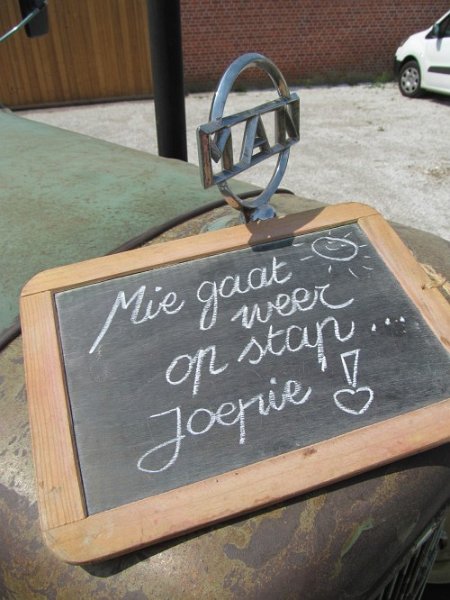 MAN
Mie gaat
weer
op stap...
Joepie!